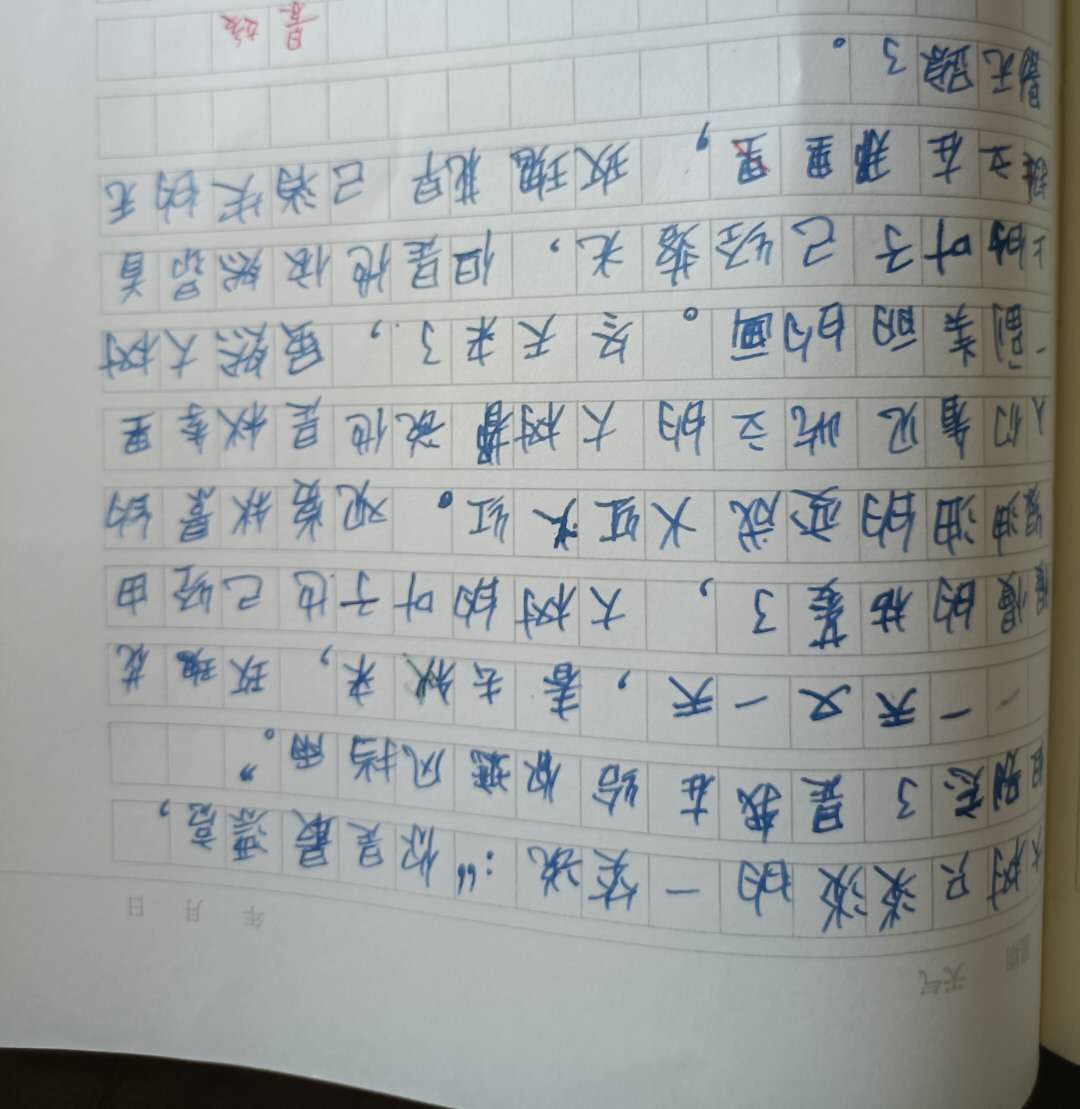 星期 天气 年 月 日
大树只淡淡的一笑说:“你是最漂亮,
但别忘了是我在给你遮风挡雨。”
一天又一天,春去秋来,玫瑰花
慢慢的枯萎了,大树的叶子也已经由
绿油油的变成火红火红。观赏秋景的
人们看见屹立的大树都说他是秋季里
一副美丽的画。冬天来了,虽然大树
上的叶子已经落光,但是他依然昂首
挺立在那里,玫瑰花早已消失的无
影无踪了。